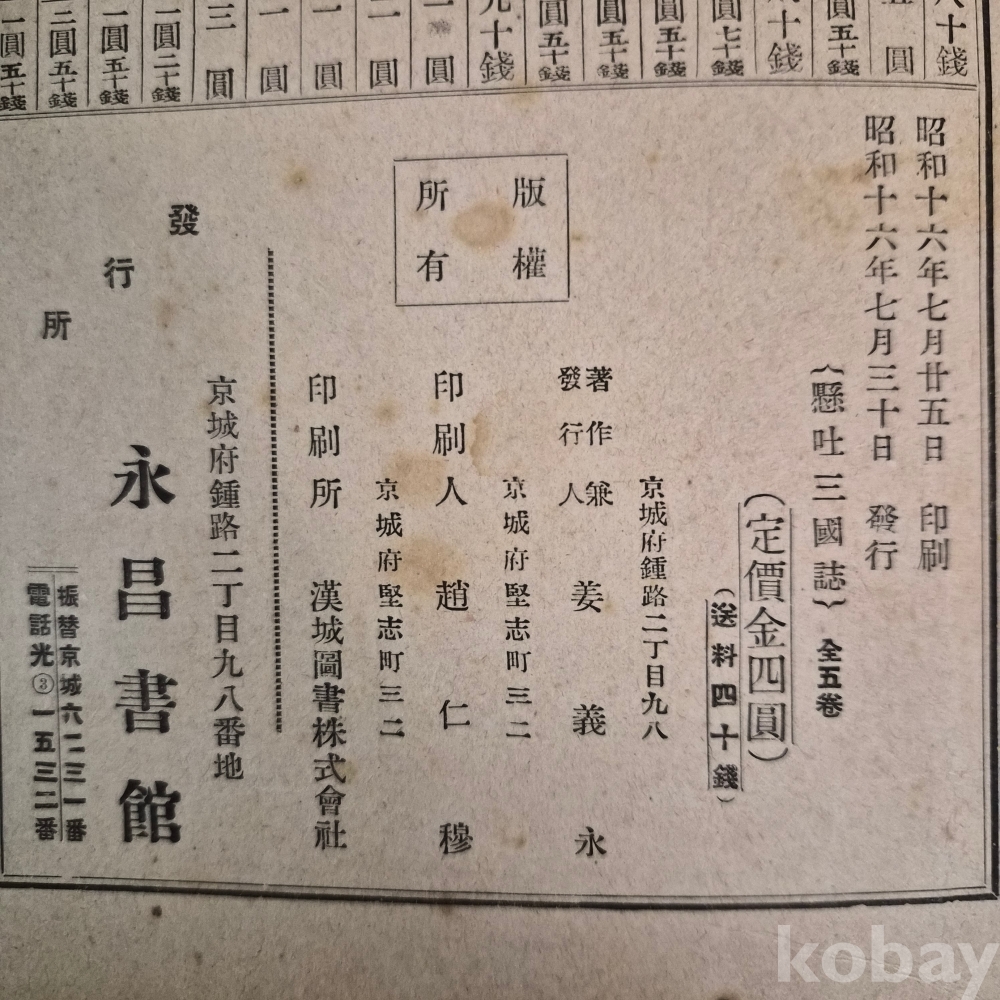 八十錢
五圓
圓五十錢
十錢
圓七十錢
圓五十錢
圓五十錢
圓五十錢
九十錢
一圓
二圓
一圓
一圓
三圓
一圓二十錢
一圓五十錢
二圓五十錢
一圓五十錢
昭和十六年七月廿五日 印刷
昭和十六年七月三十日 發行
(懸吐三國誌) 全五卷
(定價金四圓)
(送料四十錢)
版權
所有
京城府鍾路二丁目九八
著作兼
發行人 姜義永
京城府堅志町三二
印刷人 趙仁穆
京城府堅志町三二
印刷所 漢城圖書株式會社
京城府鍾路二丁目九八番地
發行所 永昌書館
振替京城六二三一番
電話光③一五三二番
kobay